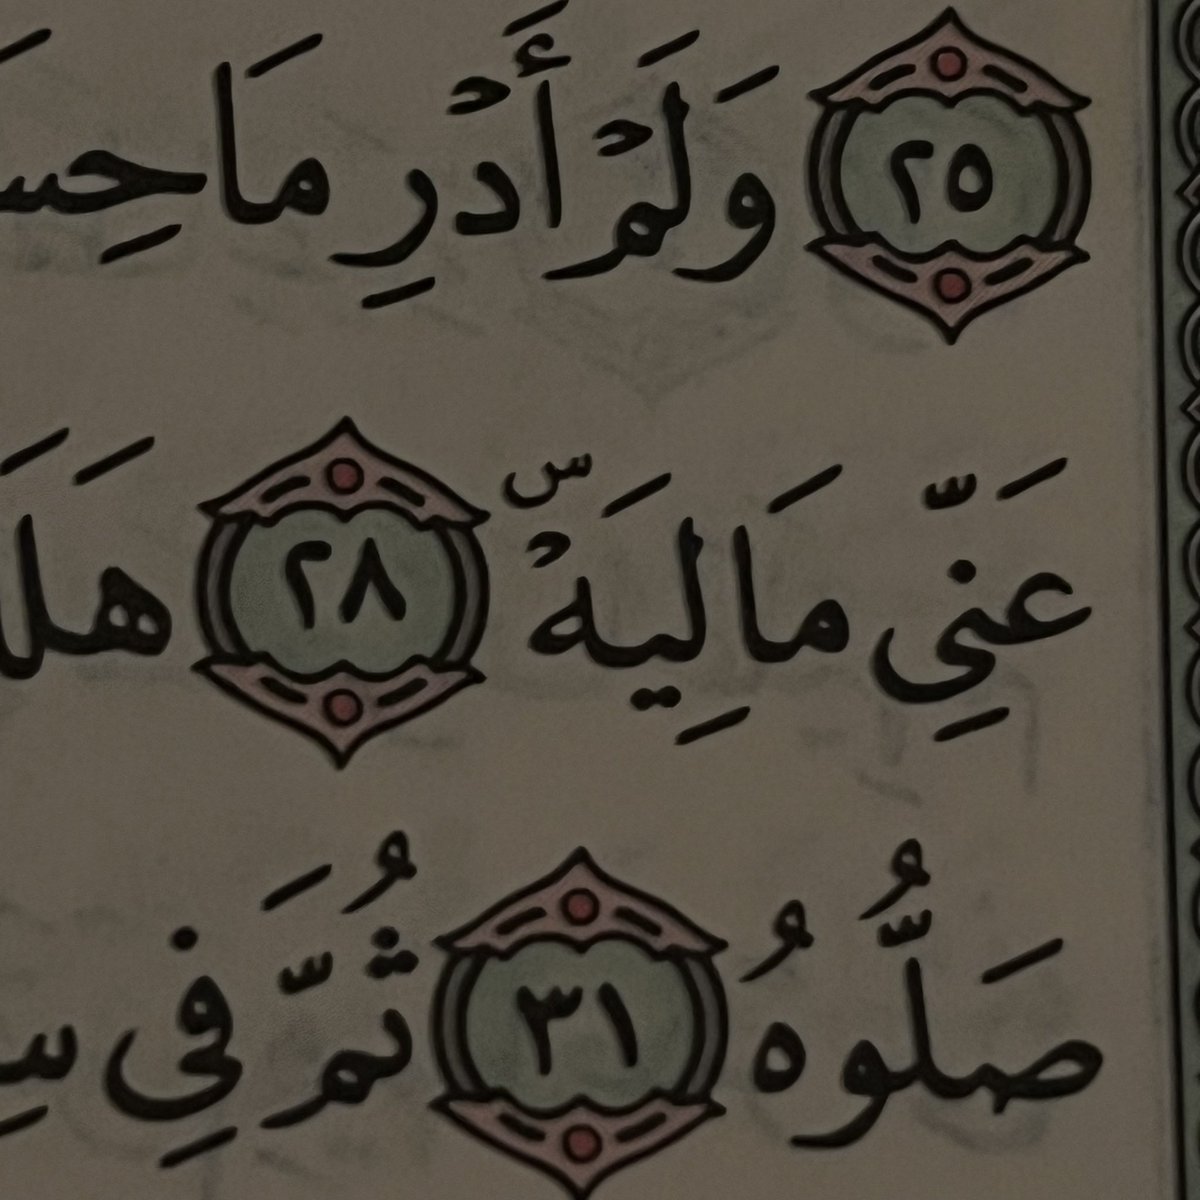 ٢٥ وَلَمْ أَدْرِ مَا
عَنِّي مَالِيَهْۜ ٢٨
صَلُّوهُ ٣١ ثُمَّ فِي